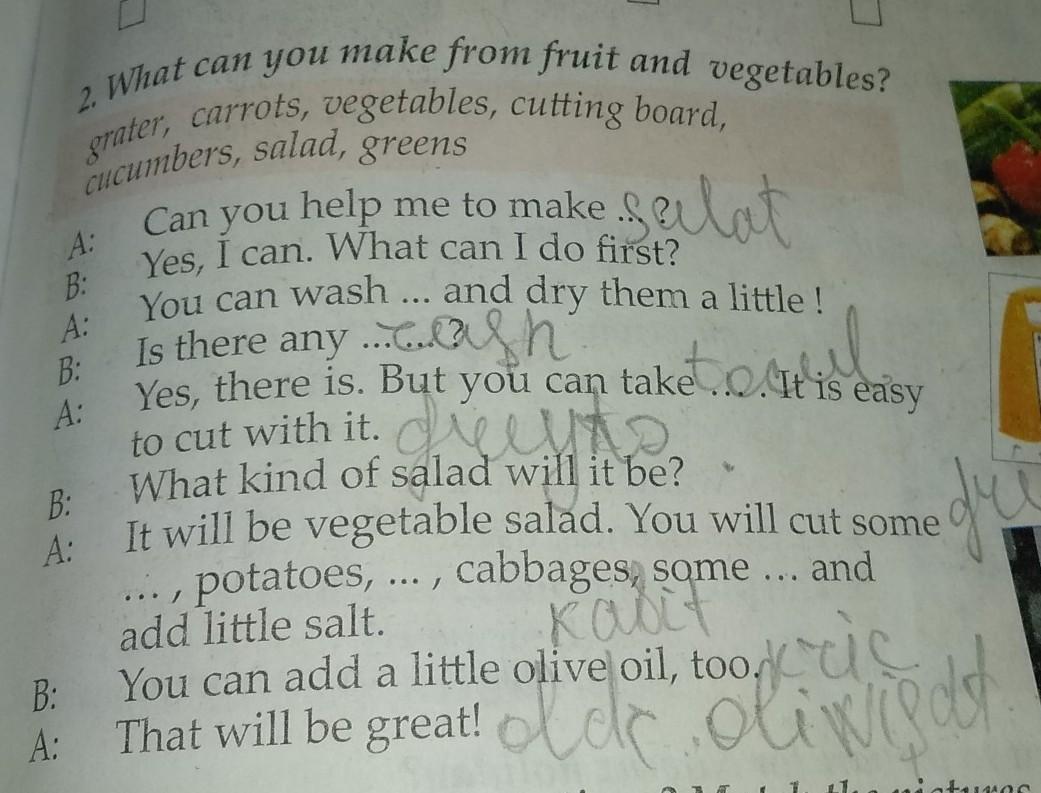 2. What can you make from fruit and vegetables?
grater, carrots, vegetables, cutting board,
cucumbers, salad, greens
A: Can you help me to make ...? salat
B: Yes, I can. What can I do first?
A: You can wash ... and dry them a little !
B: Is there any ... ... ?
A: Yes, there is. But you can take ... . It is easy
to cut with it.
B: What kind of salad will it be?
A: It will be vegetable salad. You will cut some
... , potatoes, ... , cabbages, some ... and
add little salt.
B: You can add a little olive oil, too.
A: That will be great!